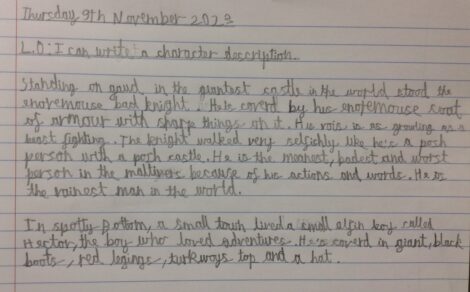 Thursday 9th November 2023
L.O: I can write a character description.
Standing on gawd in the giantest castle in the world stood the
enoremouse bad knight. He is coverd by his enoremouse soot
of armour with sharp things on it. His vois is as growling as a
beast fighting. The knight walked very selfishly like he's a posh
person with a posh castle. He is the meanest, badest and worst
person in the maltivers because of his actions and words. He is
the vainest man in the world.
In spotty Bottom, a small town lived a small elfin boy called
Hector, the boy who loved adventures. He's coverd in giant, black
boots, red legings, turkways top and a hat.